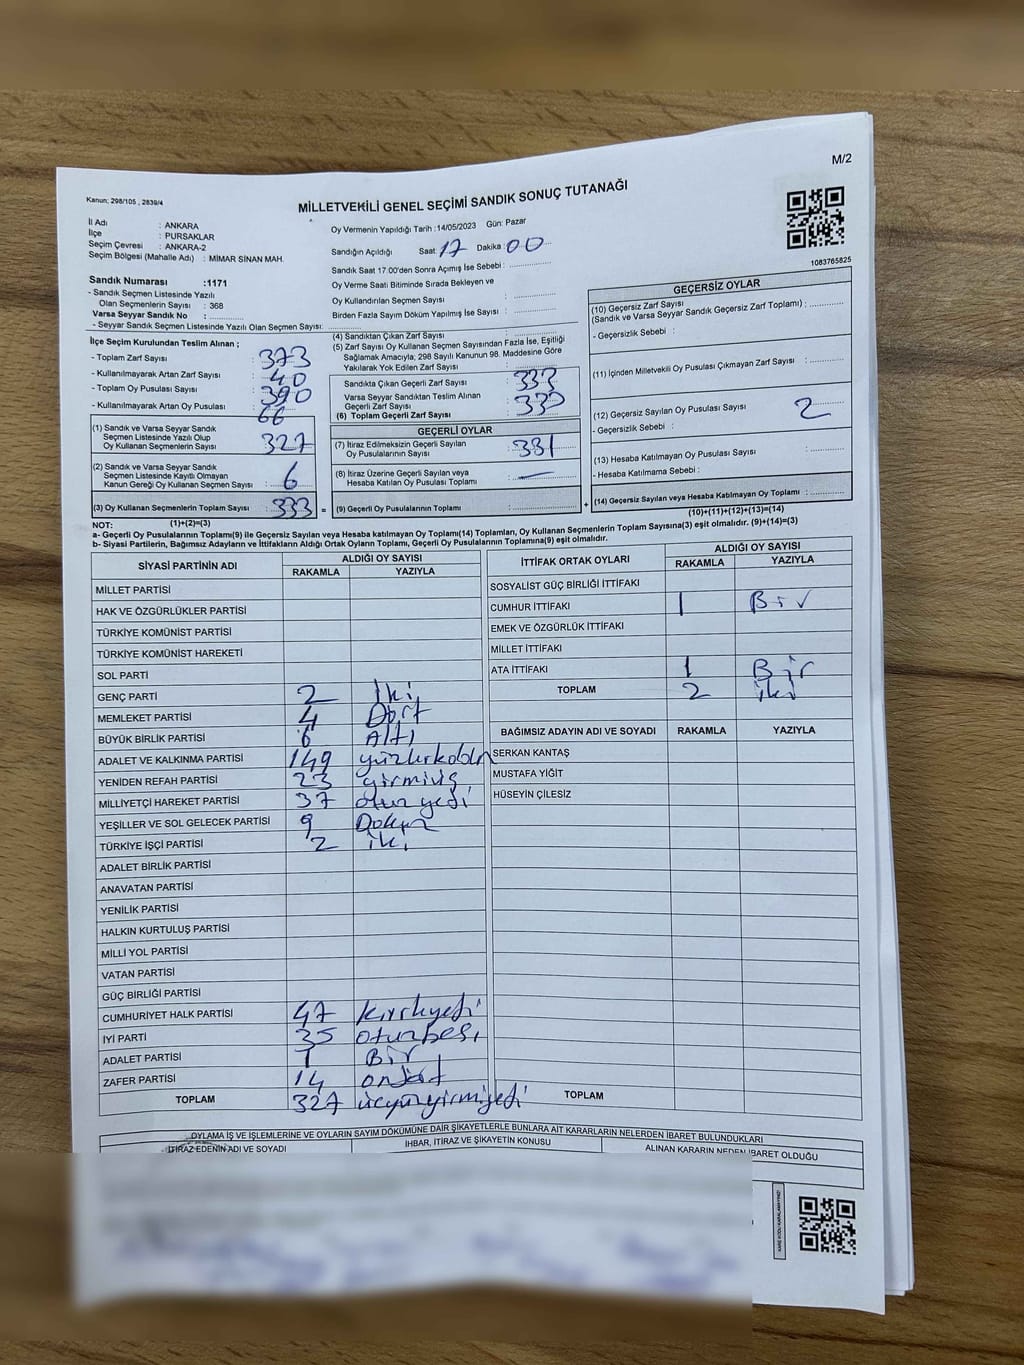 M/2
Kanun; 298/105 , 2839/4
MİLLETVEKİLİ GENEL SEÇİMİ SANDIK SONUÇ TUTANAĞI
İl Adı : ANKARA
İlçe : PURSAKLAR
Seçim Çevresi : ANKARA-2
Seçim Bölgesi (Mahalle Adı) : MİMAR SİNAN MAH.
Sandık Numarası :1171
- Sandık Seçmen Listesinde Yazılı
Olan Seçmenlerin Sayısı : 368
Varsa Seyyar Sandık No :
- Seyyar Sandık Seçmen Listesinde Yazılı Olan Seçmen Sayısı:
Oy Vermenin Yapıldığı Tarih :14/05/2023 Gün: Pazar
Sandığın Açıldığı Saat: 17 Dakika: 00
Sandık Saat 17.00'den Sonra Açımış İse Sebebi :
Oy Verme Saati Bitiminde Sırada Bekleyen ve
Oy Kullandırılan Seçmen Sayısı :
Birden Fazla Sayım Döküm Yapılmış İse Sayısı :
1083765825
İlçe Seçim Kurulundan Teslim Alınan ;
- Toplam Zarf Sayısı : 373
- Kullanılmayarak Artan Zarf Sayısı : 40
- Toplam Oy Pusulası Sayısı : 390
- Kullanılmayarak Artan Oy Pusulası : 66
(1) Sandık ve Varsa Seyyar Sandık
Seçmen Listesinde Yazılı Olup
Oy Kullanan Seçmenlerin Sayısı : 327
(2) Sandık ve Varsa Seyyar Sandık
Seçmen Listesinde Kayıtlı Olmayan
Kanun Gereği Oy Kullanan Seçmen Sayısı : 6
(3) Oy Kullanan Seçmenlerin Toplam Sayısı : 333 =
(1)+(2)=(3)
(4) Sandıktan Çıkan Zarf Sayısı :
(5) Zarf Sayısı Oy Kullanan Seçmen Sayısından Fazla İse, Eşitliği
Sağlamak Amacıyla; 298 Sayılı Kanunun 98. Maddesine Göre
Yakılarak Yok Edilen Zarf Sayısı :
Sandıkta Çıkan Geçerli Zarf Sayısı : 333
Varsa Seyyar Sandıktan Teslim Alınan
Geçerli Zarf Sayısı
(6) Toplam Geçerli Zarf Sayısı : 333
GEÇERLİ OYLAR
(7) İtiraz Edilmeksizin Geçerli Sayılan
Oy Pusulalarının Sayısı : 331
(8) İtiraz Üzerine Geçerli Sayılan veya
Hesaba Katılan Oy Pusulası Toplamı : —
(9) Geçerli Oy Pusulalarının Toplamı : +
GEÇERSİZ OYLAR
(10) Geçersiz Zarf Sayısı
(Sandık ve Varsa Seyyar Sandık Geçersiz Zarf Toplamı) :
- Geçersizlik Sebebi :
(11) İçinden Milletvekili Oy Pusulası Çıkmayan Zarf Sayısı :
(12) Geçersiz Sayılan Oy Pusulası Sayısı : 2
- Geçersizlik Sebebi :
(13) Hesaba Katılmayan Oy Pusulası Sayısı :
- Hesaba Katılmama Sebebi :
(14) Geçersiz Sayılan veya Hesaba Katılmayan Oy Toplamı :
(10)+(11)+(12)+(13)=(14)
NOT:
a- Geçerli Oy Pusulalarının Toplamı(9) ile Geçersiz Sayılan veya Hesaba katılmayan Oy Toplamı(14) Toplamları, Oy Kullanan Seçmenlerin Toplam Sayısına(3) eşit olmalıdır. (9)+(14)=(3)
b- Siyasi Partilerin, Bağımsız Adayların ve İttifakların Aldığı Ortak Oyların Toplamı, Geçerli Oy Pusulalarının Toplamına(9) eşit olmalıdır.
SİYASİ PARTİNİN ADI ALDIĞI OY SAYISI
RAKAMLA YAZIYLA
MİLLET PARTİSİ
HAK VE ÖZGÜRLÜKLER PARTİSİ
TÜRKİYE KOMÜNİST PARTİSİ
TÜRKİYE KOMÜNİST HAREKETİ
SOL PARTİ
GENÇ PARTİ 2 İki
MEMLEKET PARTİSİ 4 Dört
BÜYÜK BİRLİK PARTİSİ 6 Altı
ADALET VE KALKINMA PARTİSİ 149
YENİDEN REFAH PARTİSİ 23 yirmiüç
MİLLİYETÇİ HAREKET PARTİSİ 37 otuz yedi
YEŞİLLER VE SOL GELECEK PARTİSİ 9 Dokuz
TÜRKİYE İŞÇİ PARTİSİ 2 iki
ADALET BİRLİK PARTİSİ
ANAVATAN PARTİSİ
YENİLİK PARTİSİ
HALKIN KURTULUŞ PARTİSİ
MİLLİ YOL PARTİSİ
VATAN PARTİSİ
GÜÇ BİRLİĞİ PARTİSİ
CUMHURİYET HALK PARTİSİ 47 kırkyedi
İYİ PARTİ 35 otuzbeş
ADALET PARTİSİ 1 Bir
ZAFER PARTİSİ 14 ondört
TOPLAM 327 üçyüzyirmiyedi
İTTİFAK ORTAK OYLARI ALDIĞI OY SAYISI
RAKAMLA YAZIYLA
SOSYALİST GÜÇ BİRLİĞİ İTTİFAKI
CUMHUR İTTİFAKI 1 Bir
EMEK VE ÖZGÜRLÜK İTTİFAKI
MİLLET İTTİFAKI
ATA İTTİFAKI 1 Bir
TOPLAM 2 iki
BAĞIMSIZ ADAYIN ADI VE SOYADI RAKAMLA YAZIYLA
SERKAN KANTAŞ
MUSTAFA YİĞİT
HÜSEYİN ÇİLESİZ
TOPLAM
OYLAMA İŞ VE İŞLEMLERİNE VE OYLARIN SAYIM DÖKÜMÜNE DAİR ŞİKAYETLERLE BUNLARA AİT KARARLARIN NELERDEN İBARET BULUNDUKLARI
İTİRAZ EDENİN ADI VE SOYADI İHBAR, İTİRAZ VE ŞİKAYETİN KONUSU ALINAN KARARIN NEDEN İBARET OLDUĞU